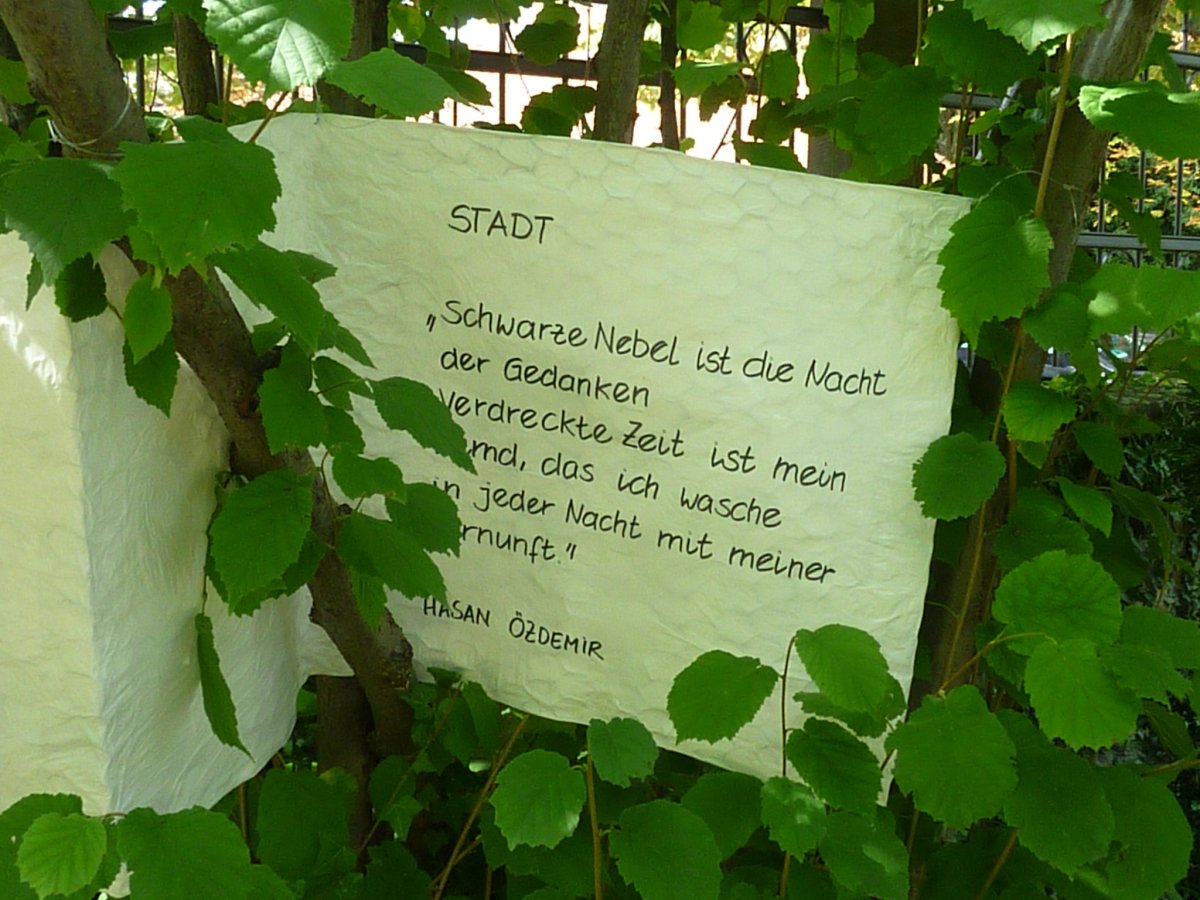 STADT
„Schwarze Nebel ist die Nacht
der Gedanken
Verdreckte Zeit ist mein
das ich wasche
in jeder Nacht mit meiner
HASAN ÖZDEMIR